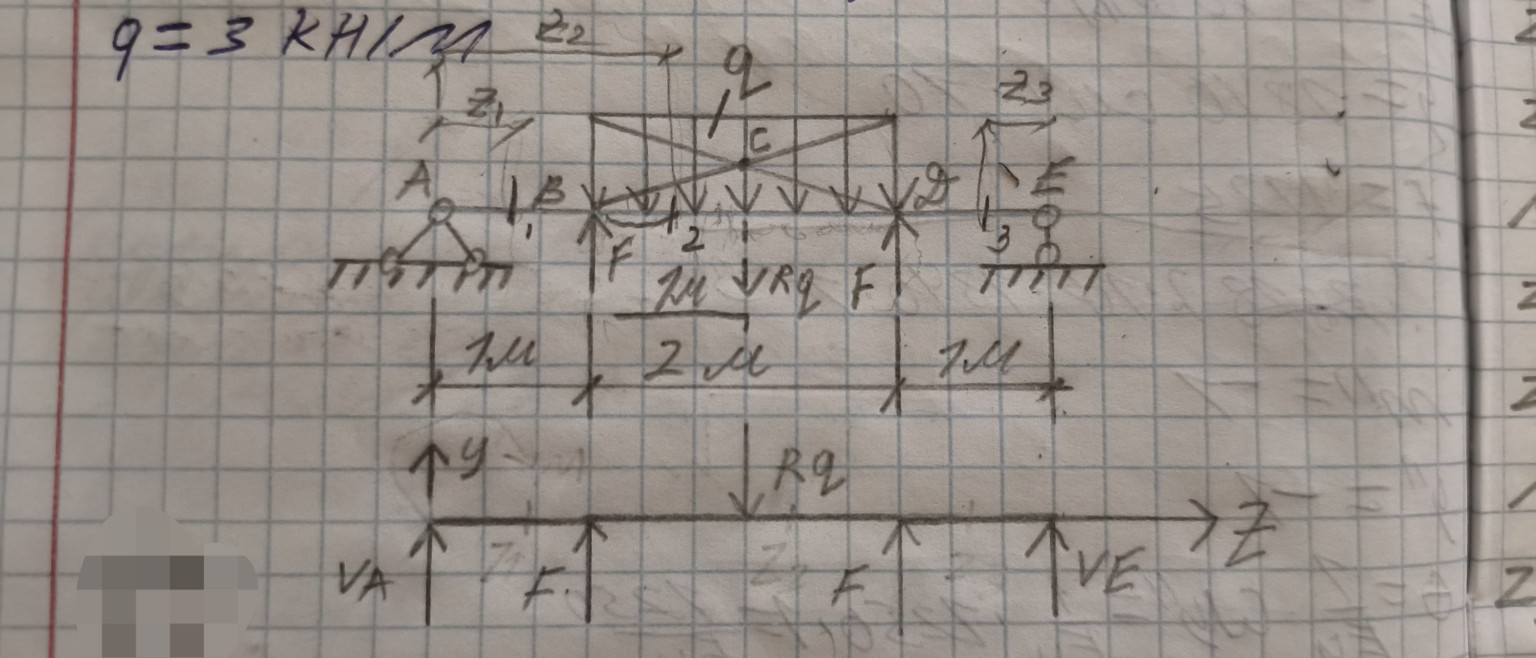 q = 3 кН/м
z2
q
z1
z3
C
A
B
D
E
1
F
2
Rq
F
3
1м
1м
2м
1м
y
Rq
z
VA
F
F
VE